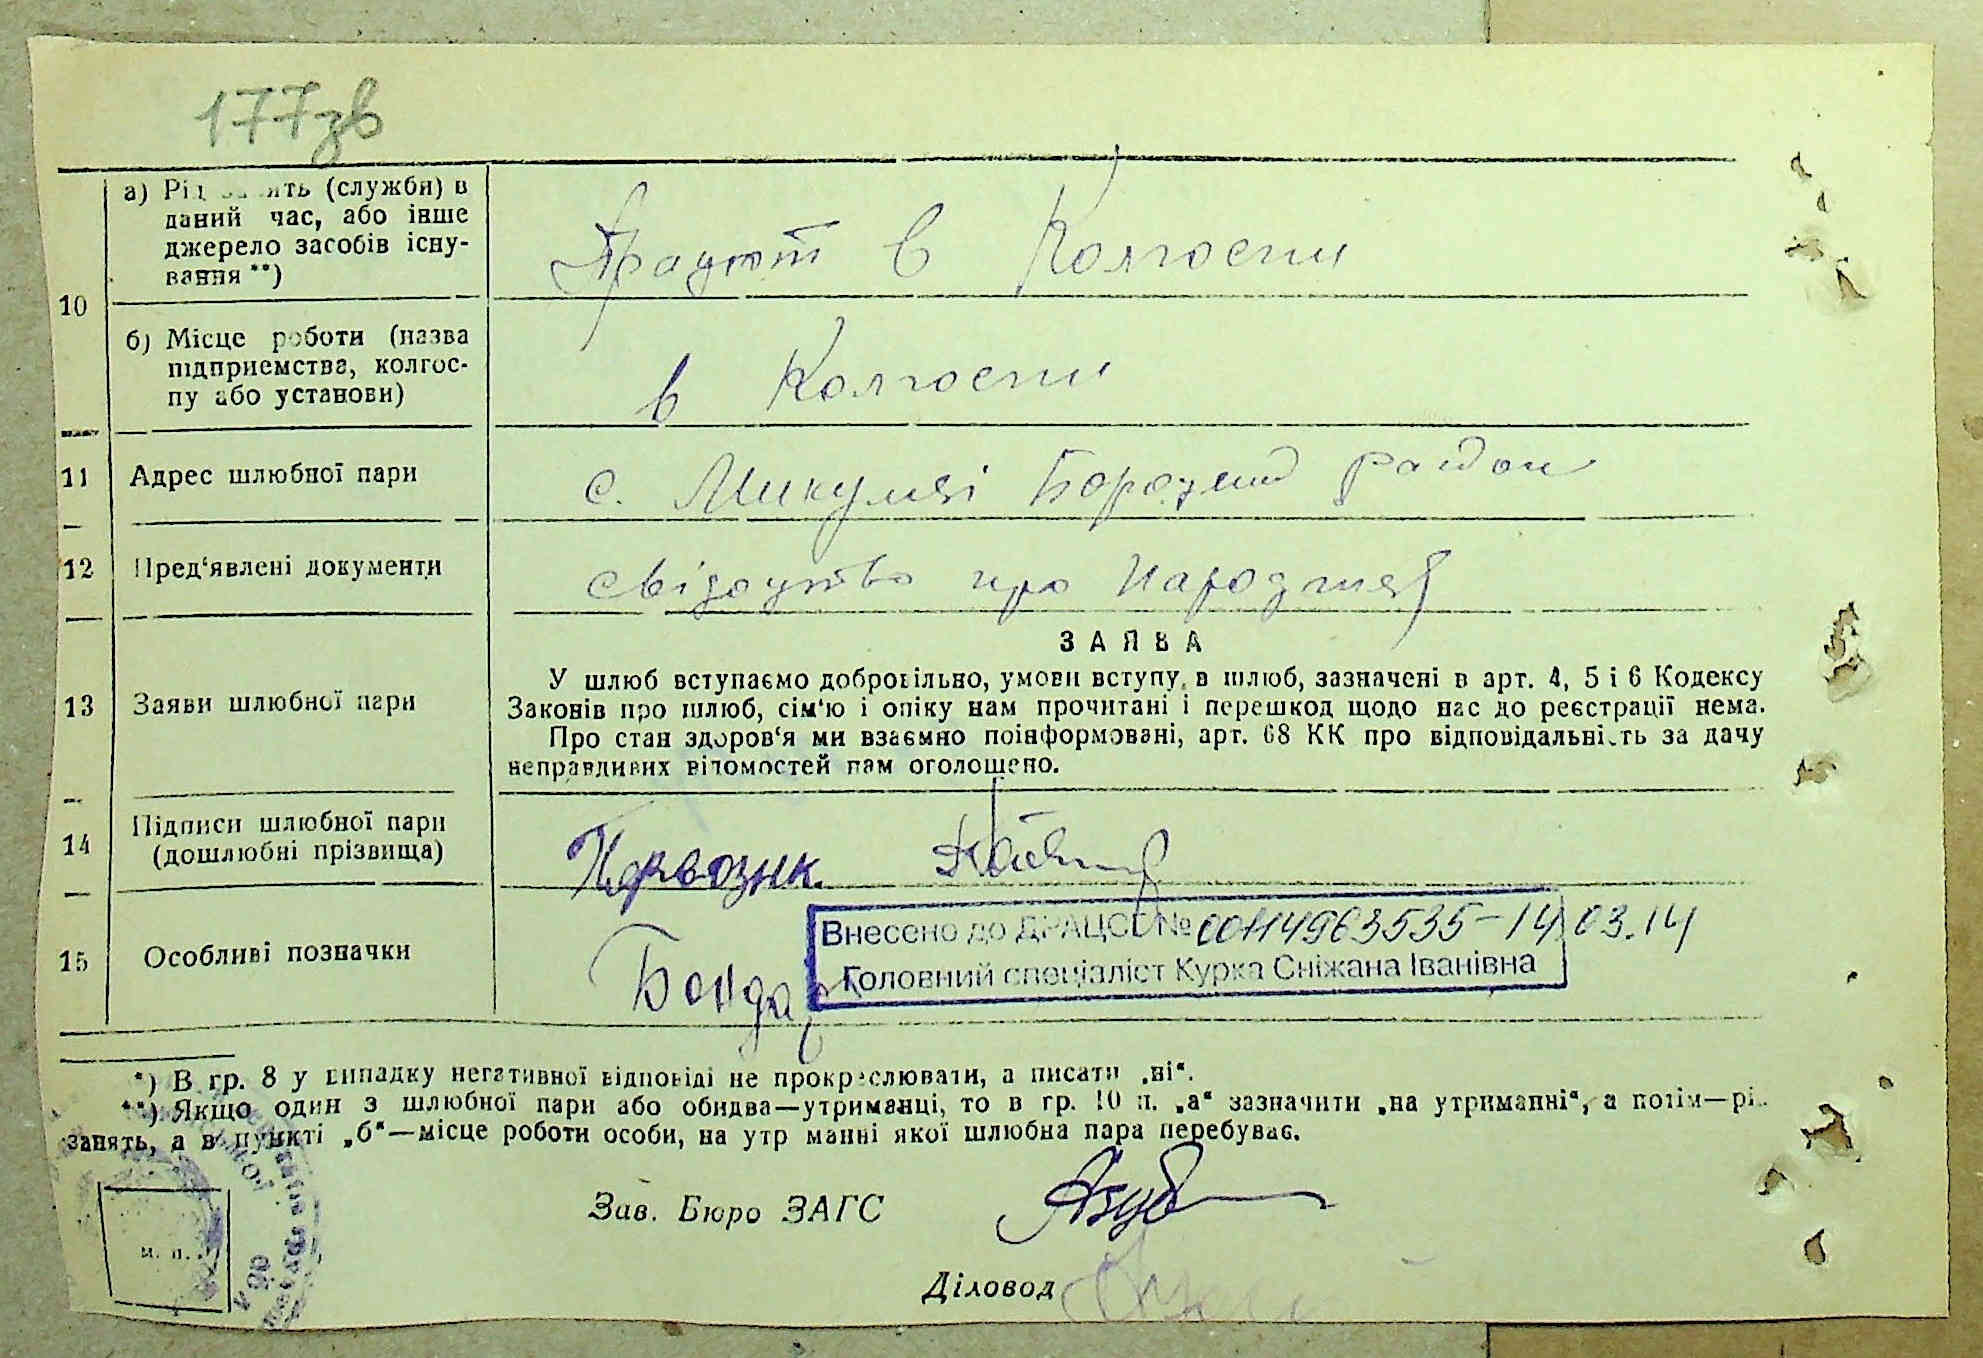 177зв
а) Рід занять (служби) в
даний час, або інше
джерело засобів існу-
вання **)
Працют в Колгоспи
10
б) Місце роботи (назва
підприємства, колгос-
пу або установи)
в Колгоспи
11 Адрес шлюбної пари
с. Микулязі район
12 Пред‘явлені документи
свідоцтво про
ЗАЯВА
13 Заяви шлюбної пари
У шлюб вступаємо добровільно, умови вступу в шлюб, зазначені в арт. 4, 5 і 6 Кодексу
Законів про шлюб, сім‘ю і опіку нам прочитані і перешкод щодо нас до реєстрації нема.
Про стан здоров‘я ми взаємно поінформовані, арт. 68 КК про відповідальність за дачу
неправдивих відомостей нам оголошено.
14 Підписи шлюбної пари
(дошлюбні прізвища)
15 Особливі позначки
Бондар
Внесено до ДРАЦСГ № 00114963535-14.03.14
Головний спеціаліст Курка Сніжана Іванівна
*) В гр. 8 у випадку негативної відповіді не прокреслювати, а писати „ні“.
**) Якщо один з шлюбної пари або обидва—утриманці, то в гр. 10 п. „а“ зазначити „на утриманні“, а потім—рід
занять, а в пункті „б“—місце роботи особи, на утриманні якої шлюбна пара перебуває.
Зав. Бюро ЗАГС
м. п.
Діловод